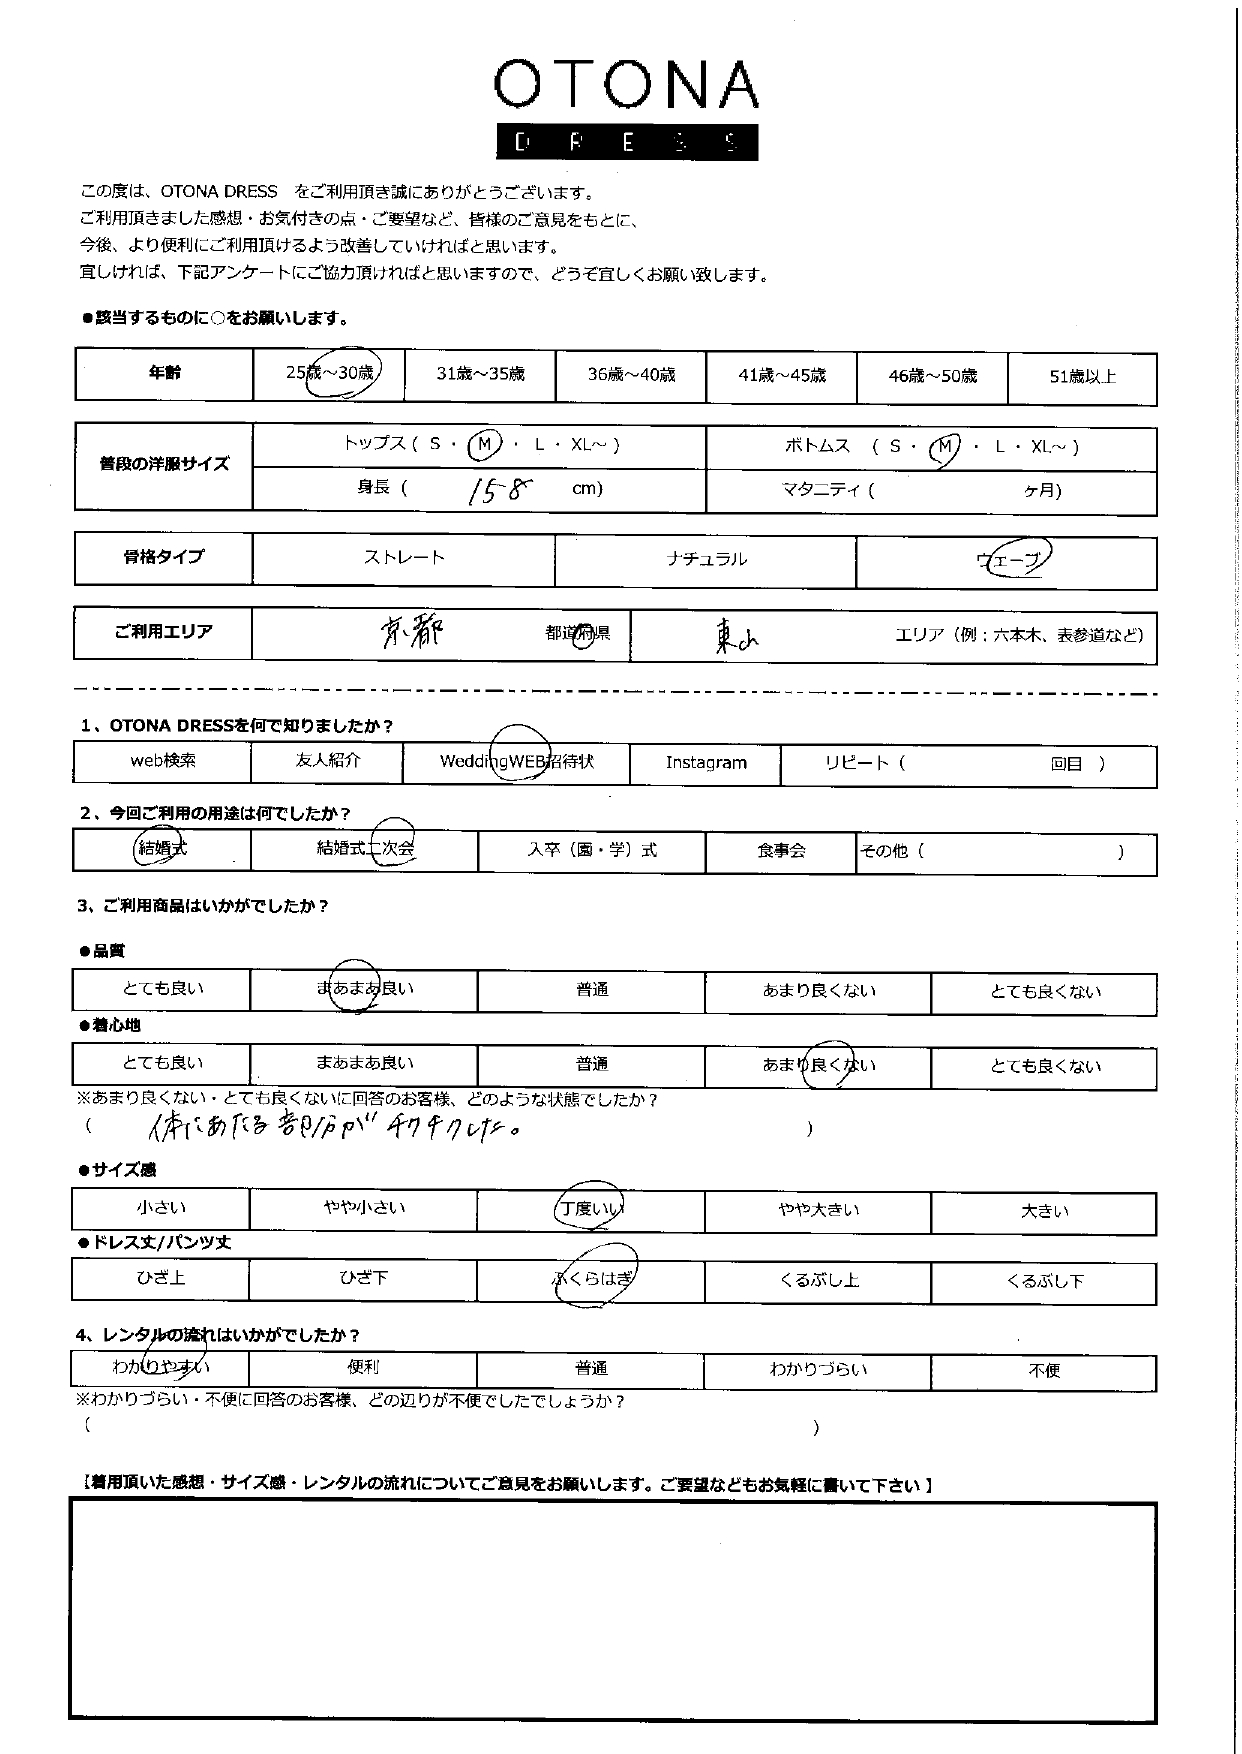 OTONA
DRESS
この度は、OTONA DRESS をご利用頂き誠にありがとうございます。
ご利用頂きました感想・お気付きの点・ご要望など、皆様のご意見をもとに、
今後、より便利にご利用頂けるよう改善していければと思います。
宜しければ、下記アンケートにご協力頂ければと思いますので、どうぞ宜しくお願い致します。
●該当するものに○をお願いします。
年齢 25歳～30歳 31歳～35歳 36歳～40歳 41歳～45歳 46歳～50歳 51歳以上
普段の洋服サイズ トップス ( S ・ M ・ L ・ XL～ ) ボトムス ( S ・ M ・ L ・ XL～ )
身長 ( 158 cm) マタニティ ( ヶ月)
骨格タイプ ストレート ナチュラル ウェーブ
ご利用エリア 京都 都道府県 東山 エリア（例：六本木、表参道など）
1、OTONA DRESSを何で知りましたか？
web検索 友人紹介 WeddingWEB招待状 Instagram リピート ( 回目 )
2、今回ご利用の用途は何でしたか？
結婚式 結婚式二次会 入卒（園・学）式 食事会 その他 ( )
3、ご利用商品はいかがでしたか？
●品質
とても良い まあまあ良い 普通 あまり良くない とても良くない
●着心地
とても良い まあまあ良い 普通 あまり良くない とても良くない
※あまり良くない・とても良くないに回答のお客様、どのような状態でしたか？
( 体にあたる部分がチクチクした。 )
●サイズ感
小さい やや小さい 丁度いい やや大きい 大きい
●ドレス丈/パンツ丈
ひざ上 ひざ下 ふくらはぎ くるぶし上 くるぶし下
4、レンタルの流れはいかがでしたか？
わかりやすい 便利 普通 わかりづらい 不便
※わかりづらい・不便に回答のお客様、どの辺りが不便でしたでしょうか？
( )
【着用頂いた感想・サイズ感・レンタルの流れについてご意見をお願いします。ご要望などもお気軽に書いて下さい】